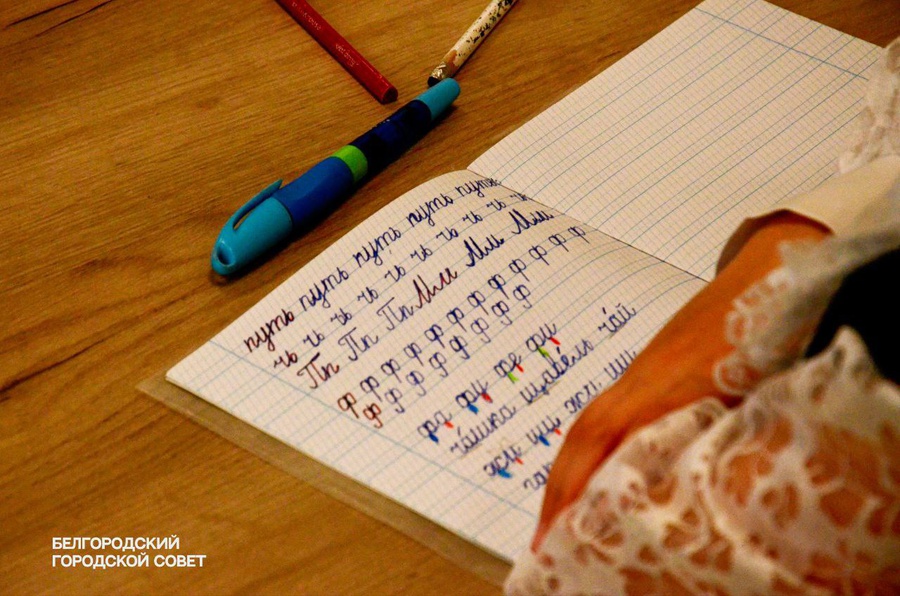 путь путь путь путь путь
чь чь чь чь чь чь чь чь чь чь
Пп Пп Пп Мм Мм Мм
ф ф ф ф ф ф ф ф ф ф ф ф
ф ф ф ф ф ф ф ф
фа фу фе фи
ча́шка щаве́ль ча́й
жи
БЕЛГОРОДСКИЙ
ГОРОДСКОЙ СОВЕТ